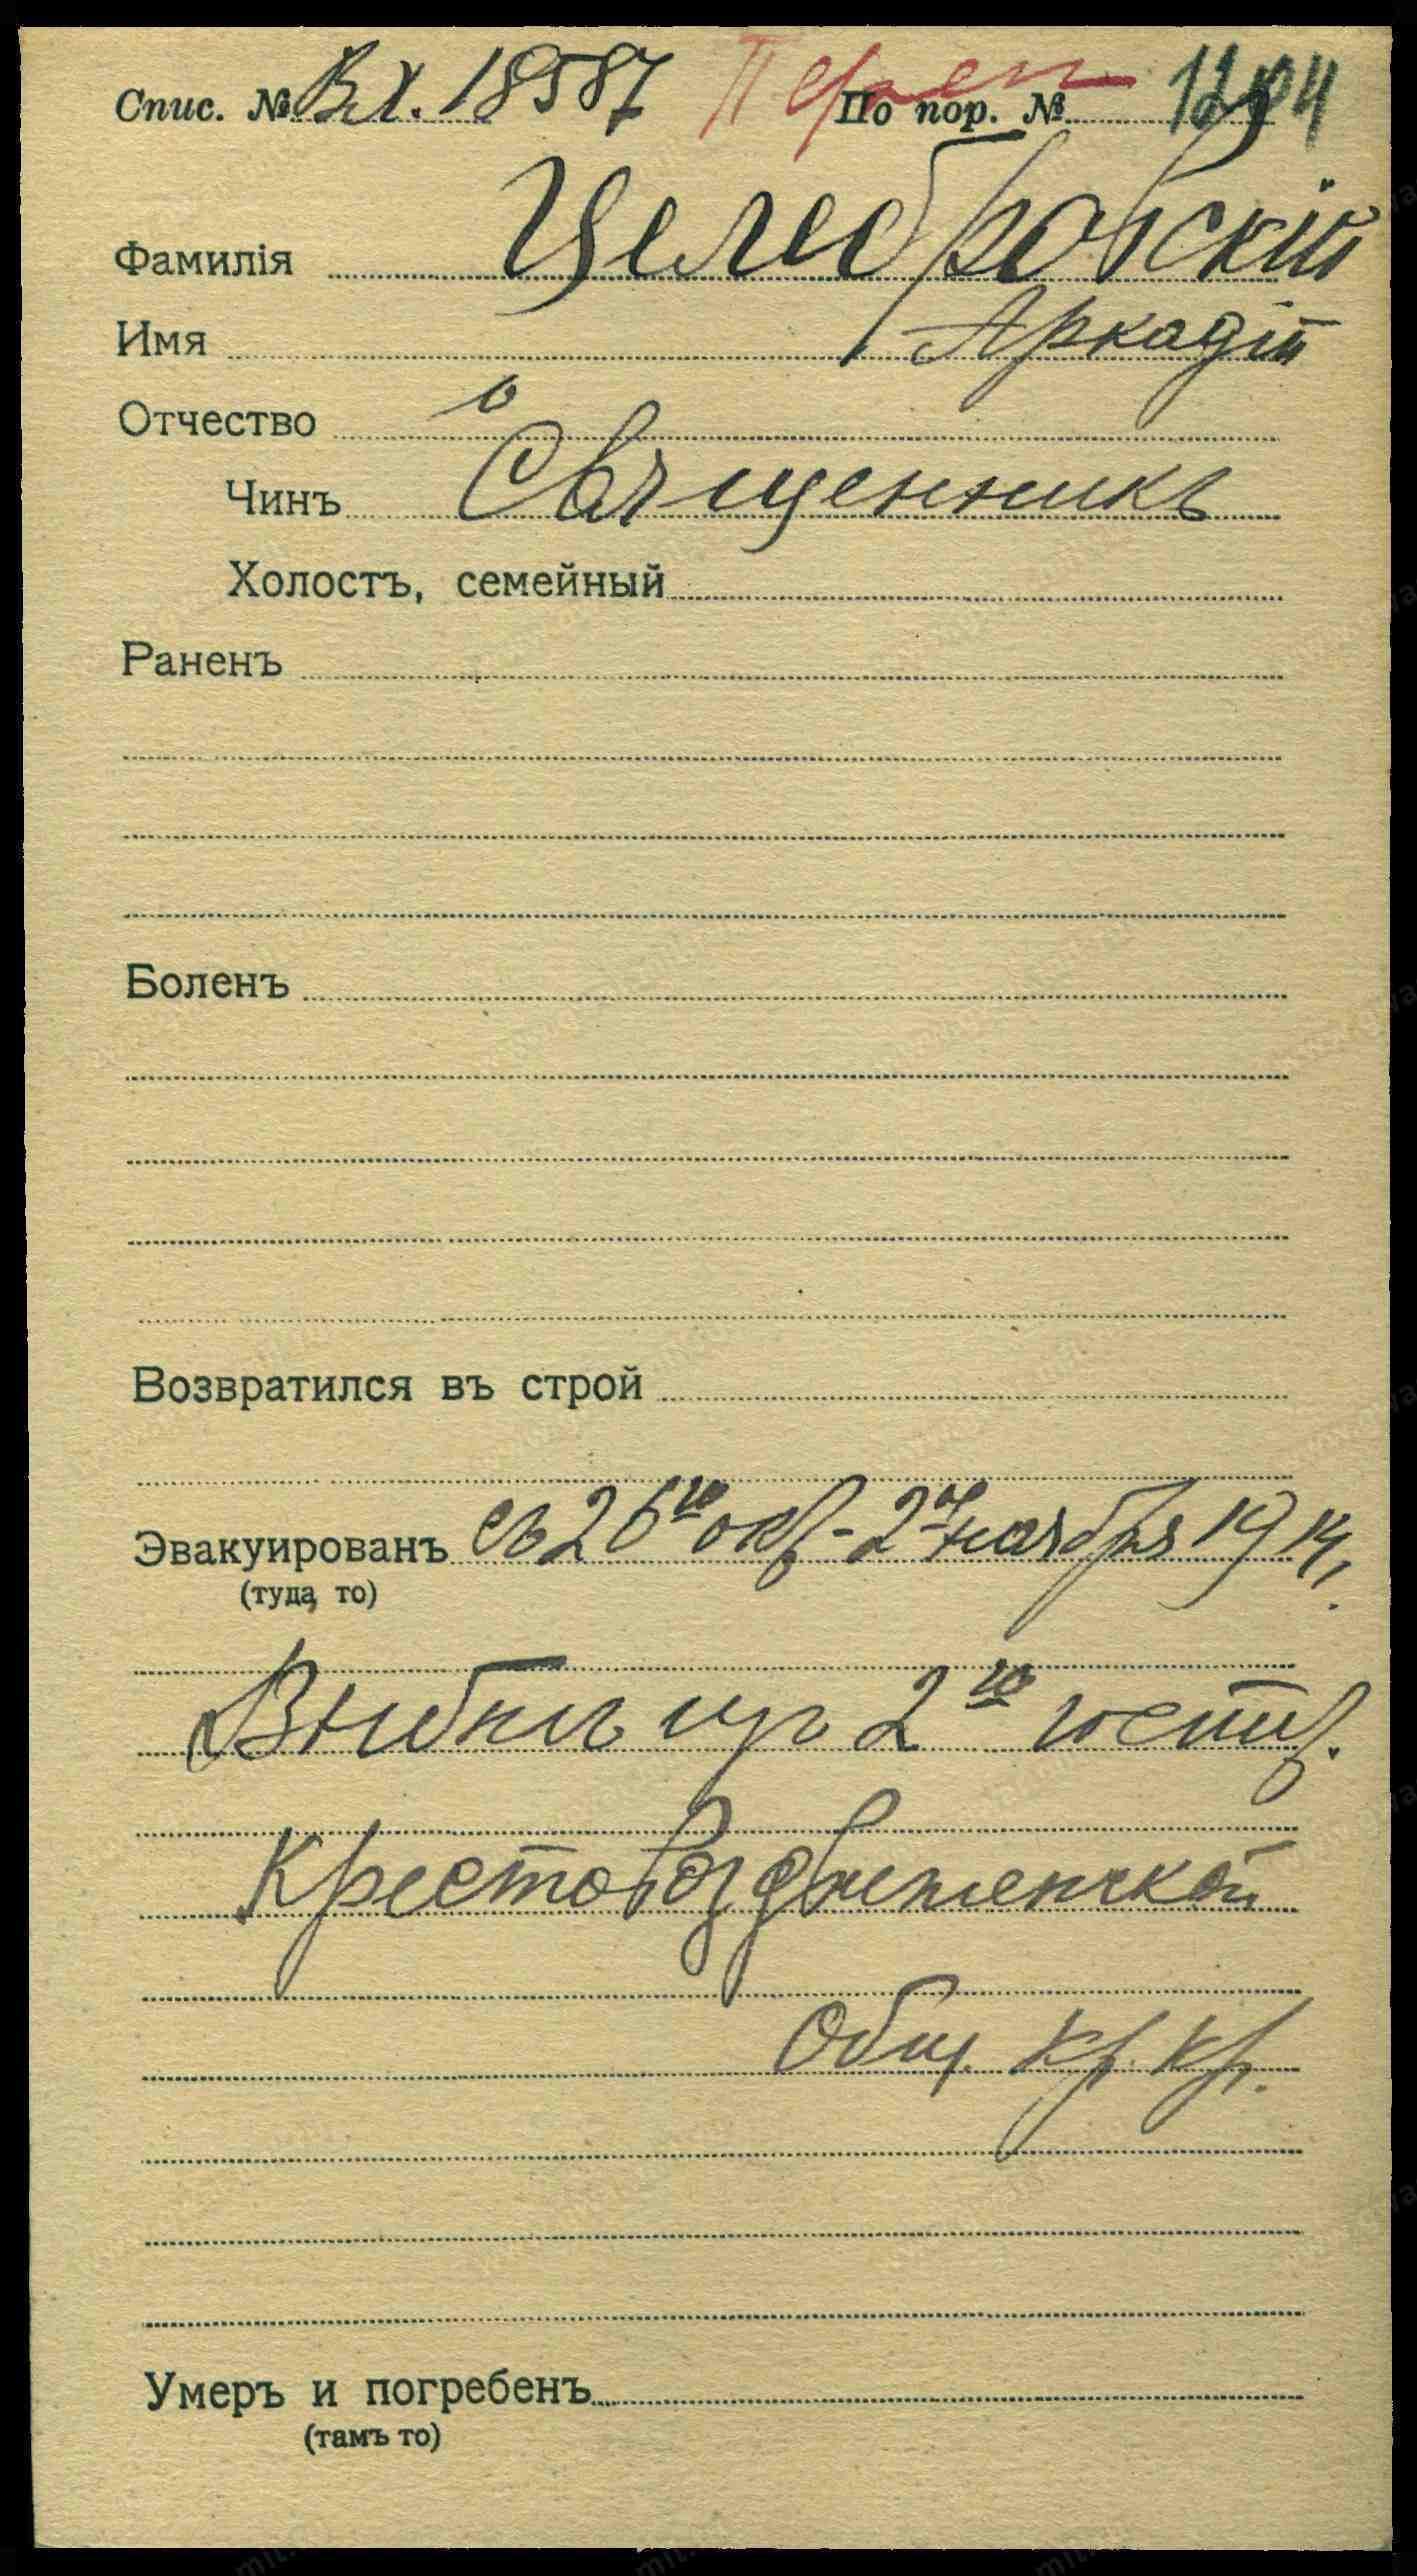 Спис. № Вх. 18587 Переп По пор. № 1204
Фамилія Целебровскій
Имя Аркадій
Отчество
Чинъ Священникъ
Холостъ, семейный
Раненъ
Боленъ
Возвратился въ строй
Эвакуированъ съ 26го окт - 2го ноября 1914 г.
(туда то)
Выбыл из 2го госпит.
Крестовоздвиженской
Общ. Кр. Кр.
Умеръ и погребенъ
(тамъ то)